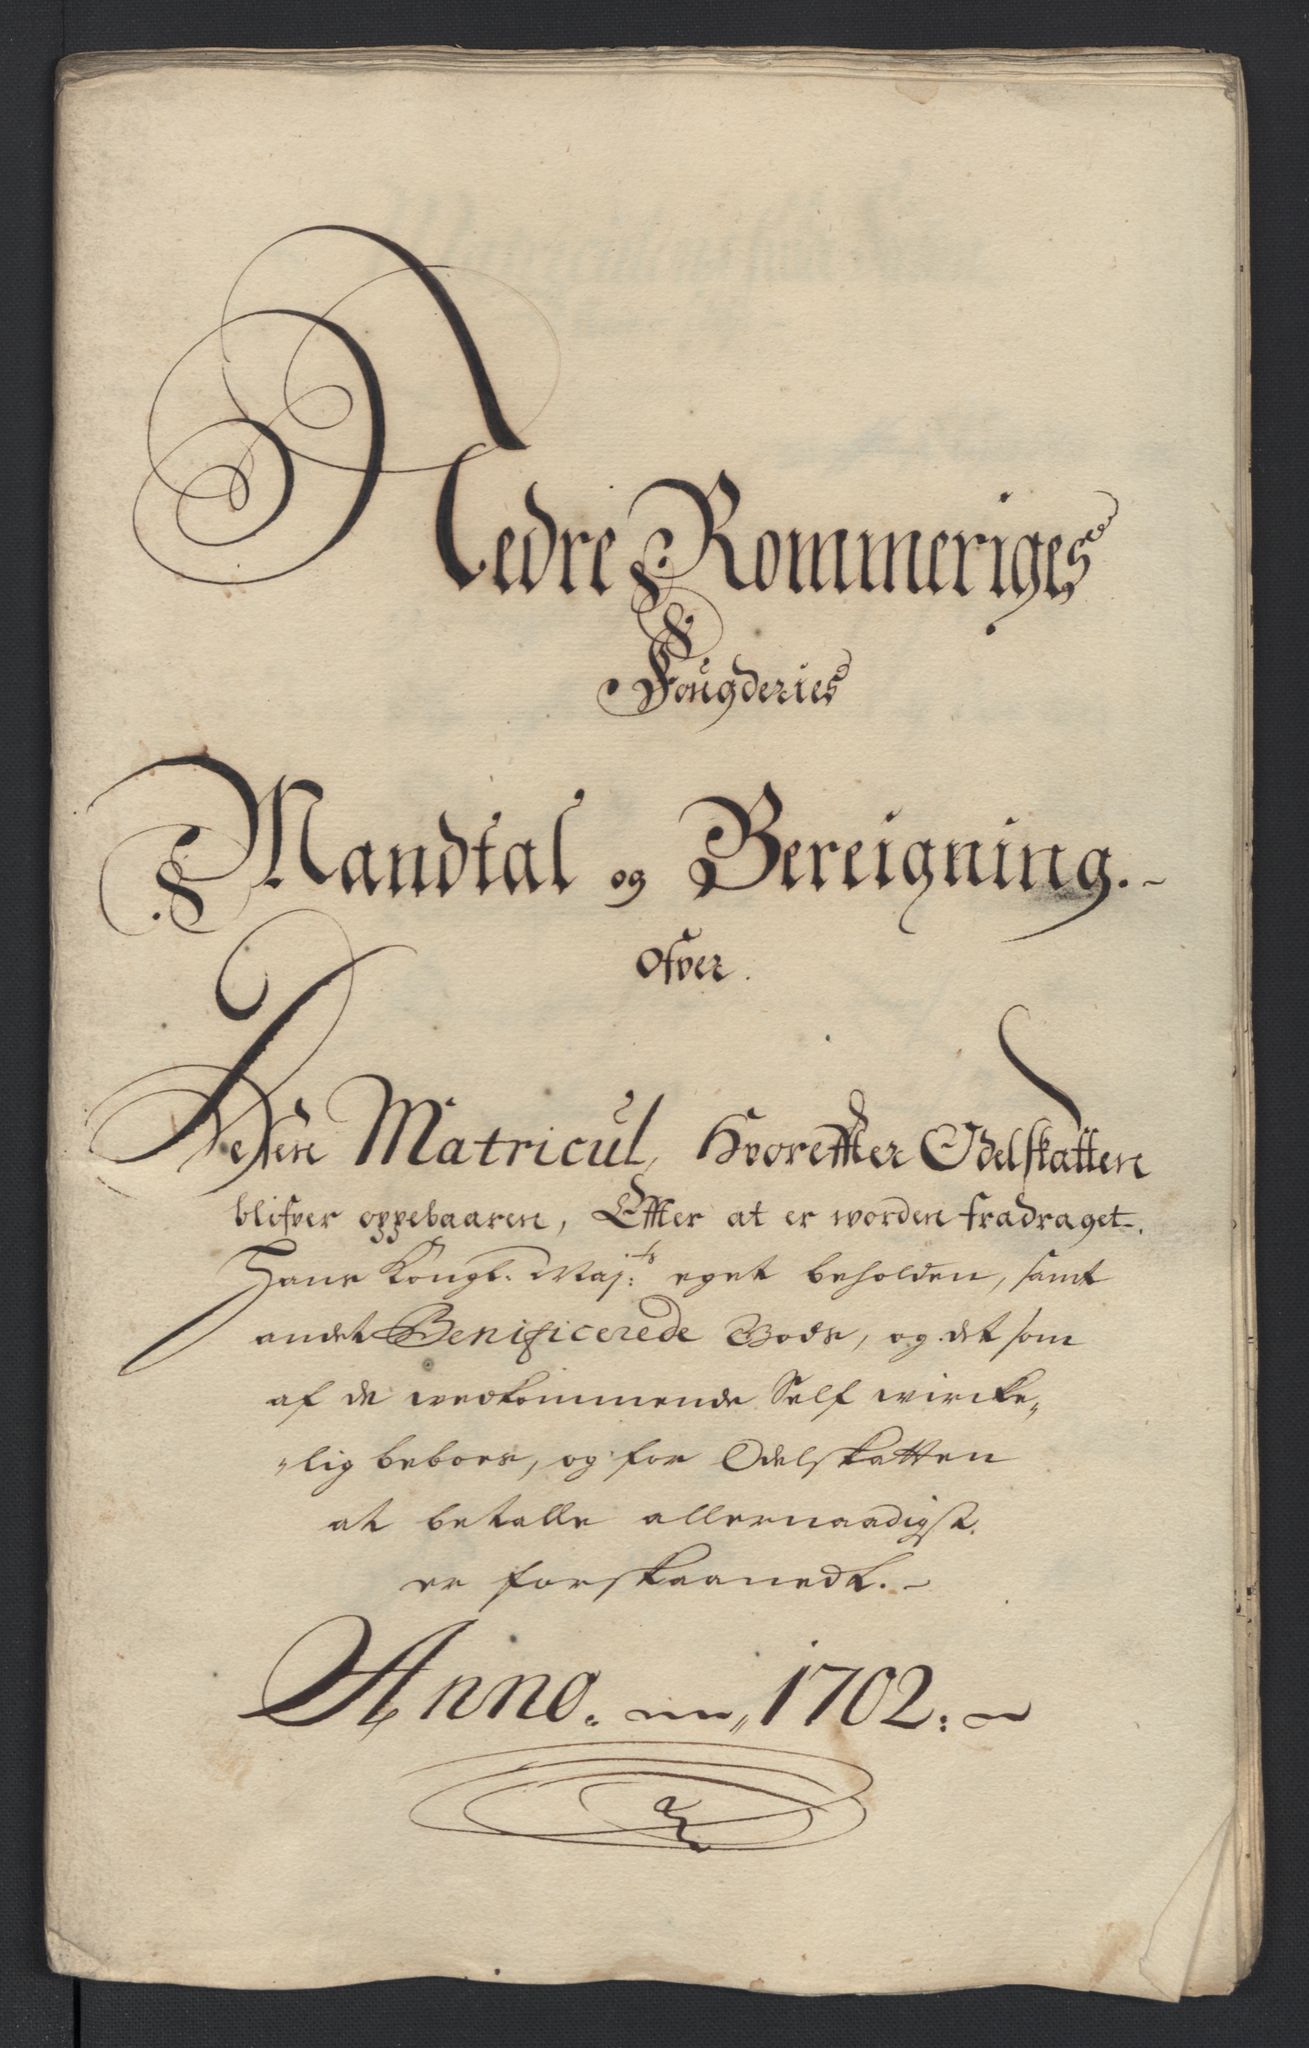 Nedre Rommeriges
Fougderies
Mandtal og Bereigning.
Ofver
Den Matricul, Hvoreffter Odelskatten
blifver oppebaaren, Effter at er worden fradraget.
Hans Kongl. Maj:ts eget beholden, samt
andet Benificerede Gods, og det som
af de wedkommende Self wircke„
„lig beboes, og for Odelskatten
at betalle allernaadigst
er forskaanedt.
Anno. 1702.